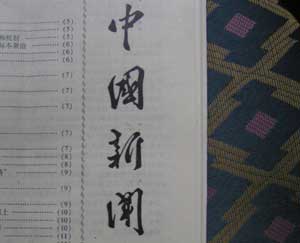 中國新聞
(5)
(5)
(6)
(6)
(7)
(7)
(7)
(7)
(7)
(8)
(8)
(9)
(9)
(9)
(10)
(10)
(10)
(11)